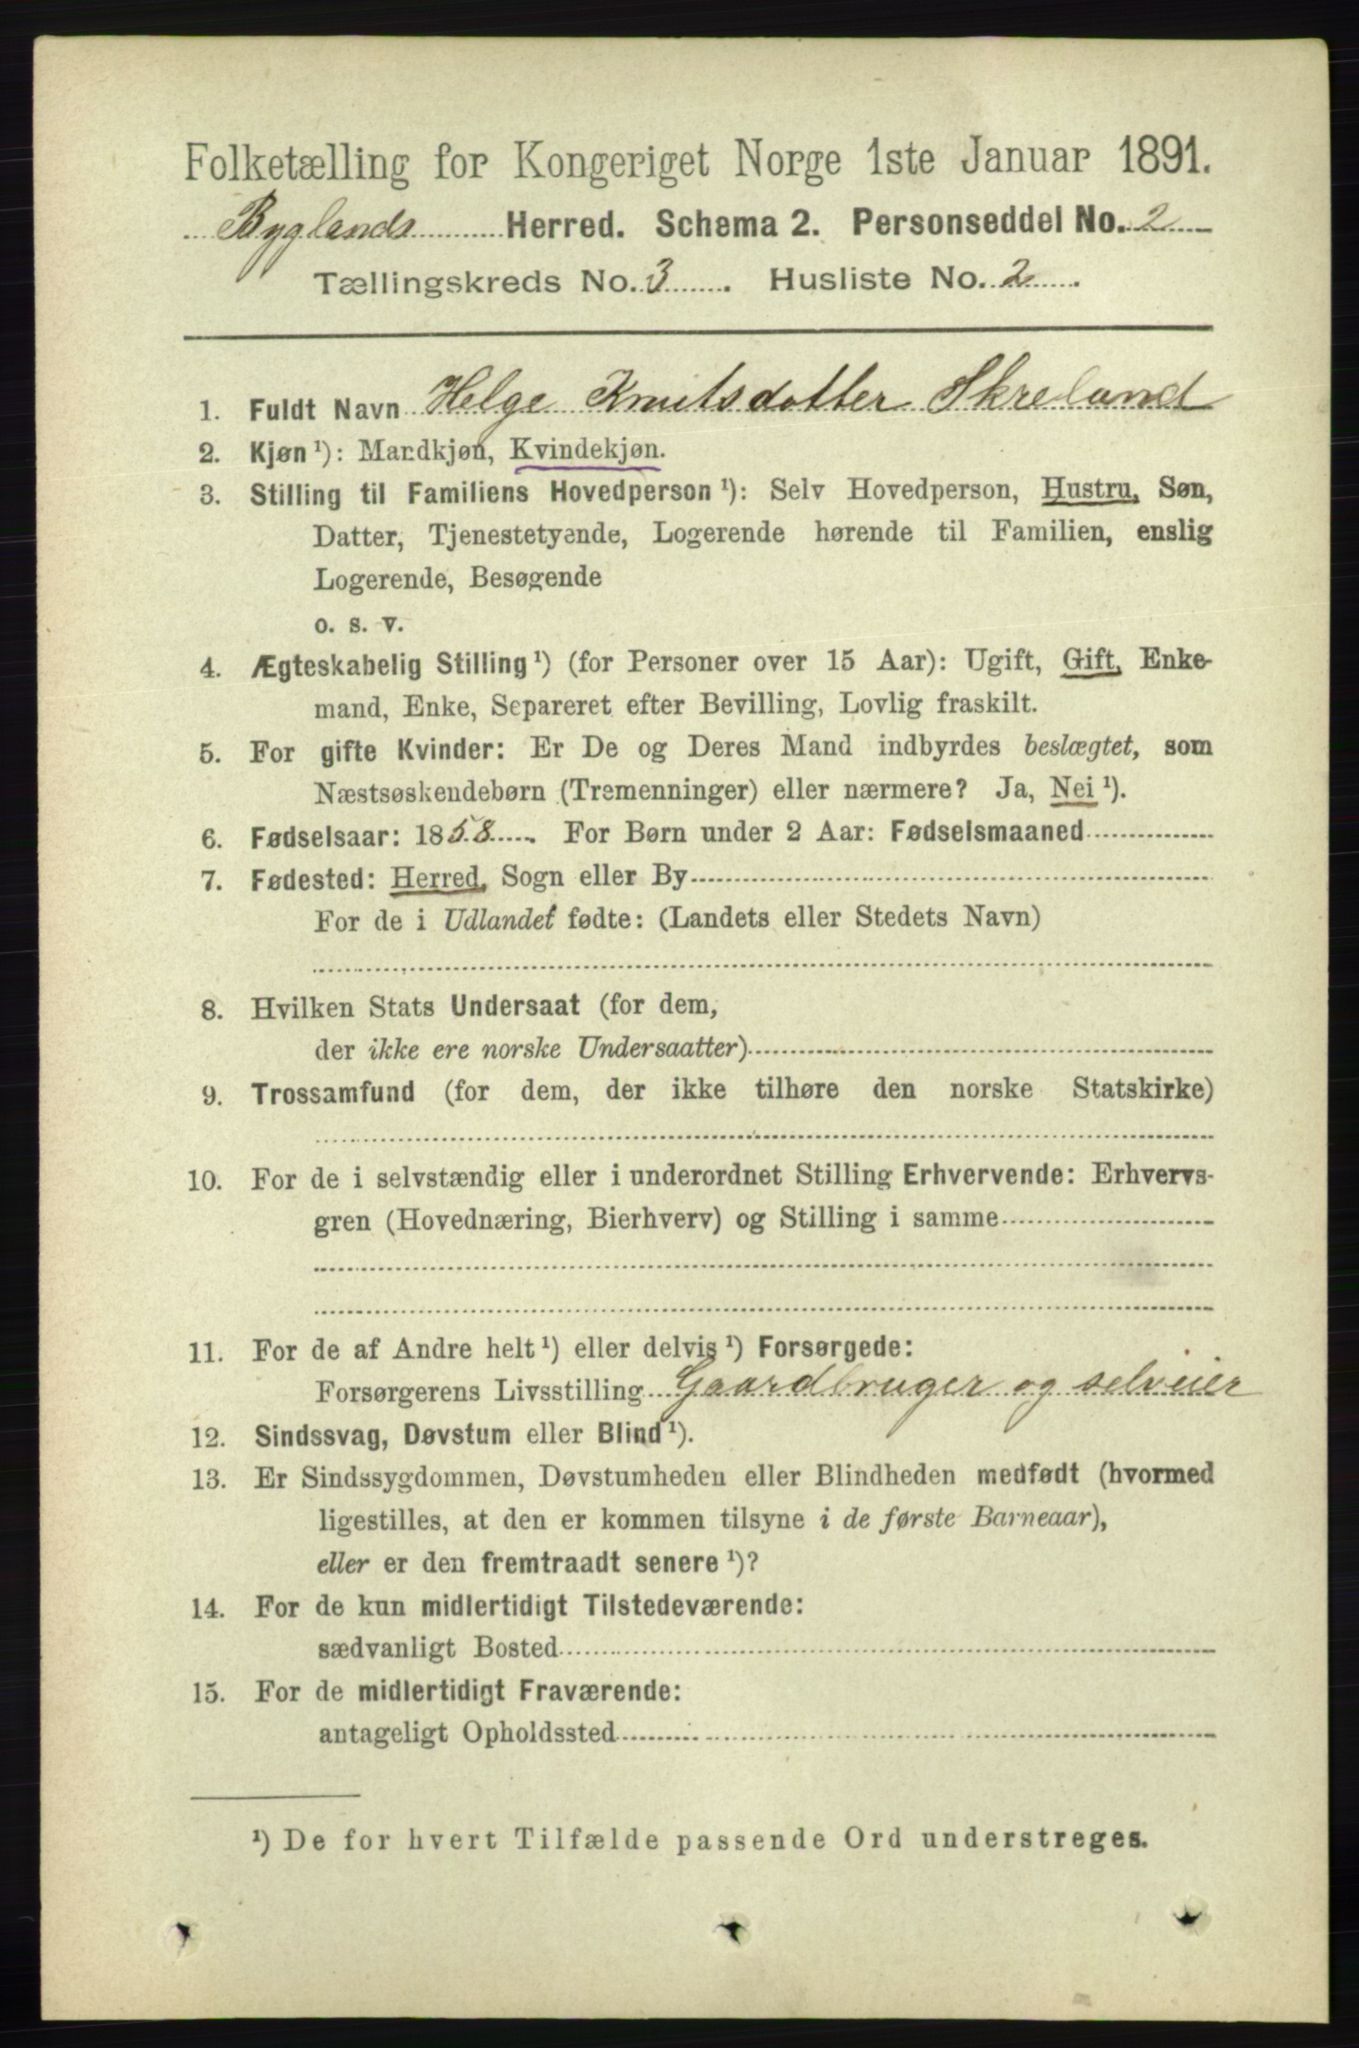 Folketælling for Kongeriget Norge 1ste Januar 1891.
Byglands Herred. Schema 2. Personseddel No. 2
Tællingskreds No. 3. Husliste No. 2.
1. Fuldt Navn Helge Knutsdotter Skreland
2. Kjøn ¹): Mandkjøn, Kvindekjøn.
3. Stilling til Familiens Hovedperson ¹): Selv Hovedperson, Hustru, Søn,
Datter, Tjenestetyende, Logerende hørende til Familien, enslig
Logerende, Besøgende
o. s. v.
4. Ægteskabelig Stilling ¹) (for Personer over 15 Aar): Ugift, Gift, Enke-
mand, Enke, Separeret efter Bevilling, Lovlig fraskilt.
5. For gifte Kvinder: Er De og Deres Mand indbyrdes beslægtet, som
Næstsøskendebørn (Tremenninger) eller nærmere? Ja, Nei ¹).
6. Fødselsaar: 1858. For Børn under 2 Aar: Fødselsmaaned
7. Fødested: Herred, Sogn eller By
For de i Udlandet fødte: (Landets eller Stedets Navn)
8. Hvilken Stats Undersaat (for dem,
der ikke ere norske Undersaatter)
9. Trossamfund (for dem, der ikke tilhøre den norske Statskirke)
10. For de i selvstændig eller i underordnet Stilling Erhvervende: Erhvervs-
gren (Hovednæring, Bierhverv) og Stilling i samme
11. For de af Andre helt ¹) eller delvis ¹) Forsørgede:
Forsørgerens Livsstilling Gaardbruger og selveier
12. Sindssvag, Døvstum eller Blind ¹).
13. Er Sindssygdommen, Døvstumheden eller Blindheden medfødt (hvormed
ligestilles, at den er kommen tilsyne i de første Barneaar),
eller er den fremtraadt senere ¹)?
14. For de kun midlertidigt Tilstedeværende:
sædvanligt Bosted
15. For de midlertidigt Fraværende:
antageligt Opholdssted
¹) De for hvert Tilfælde passende Ord understreges.